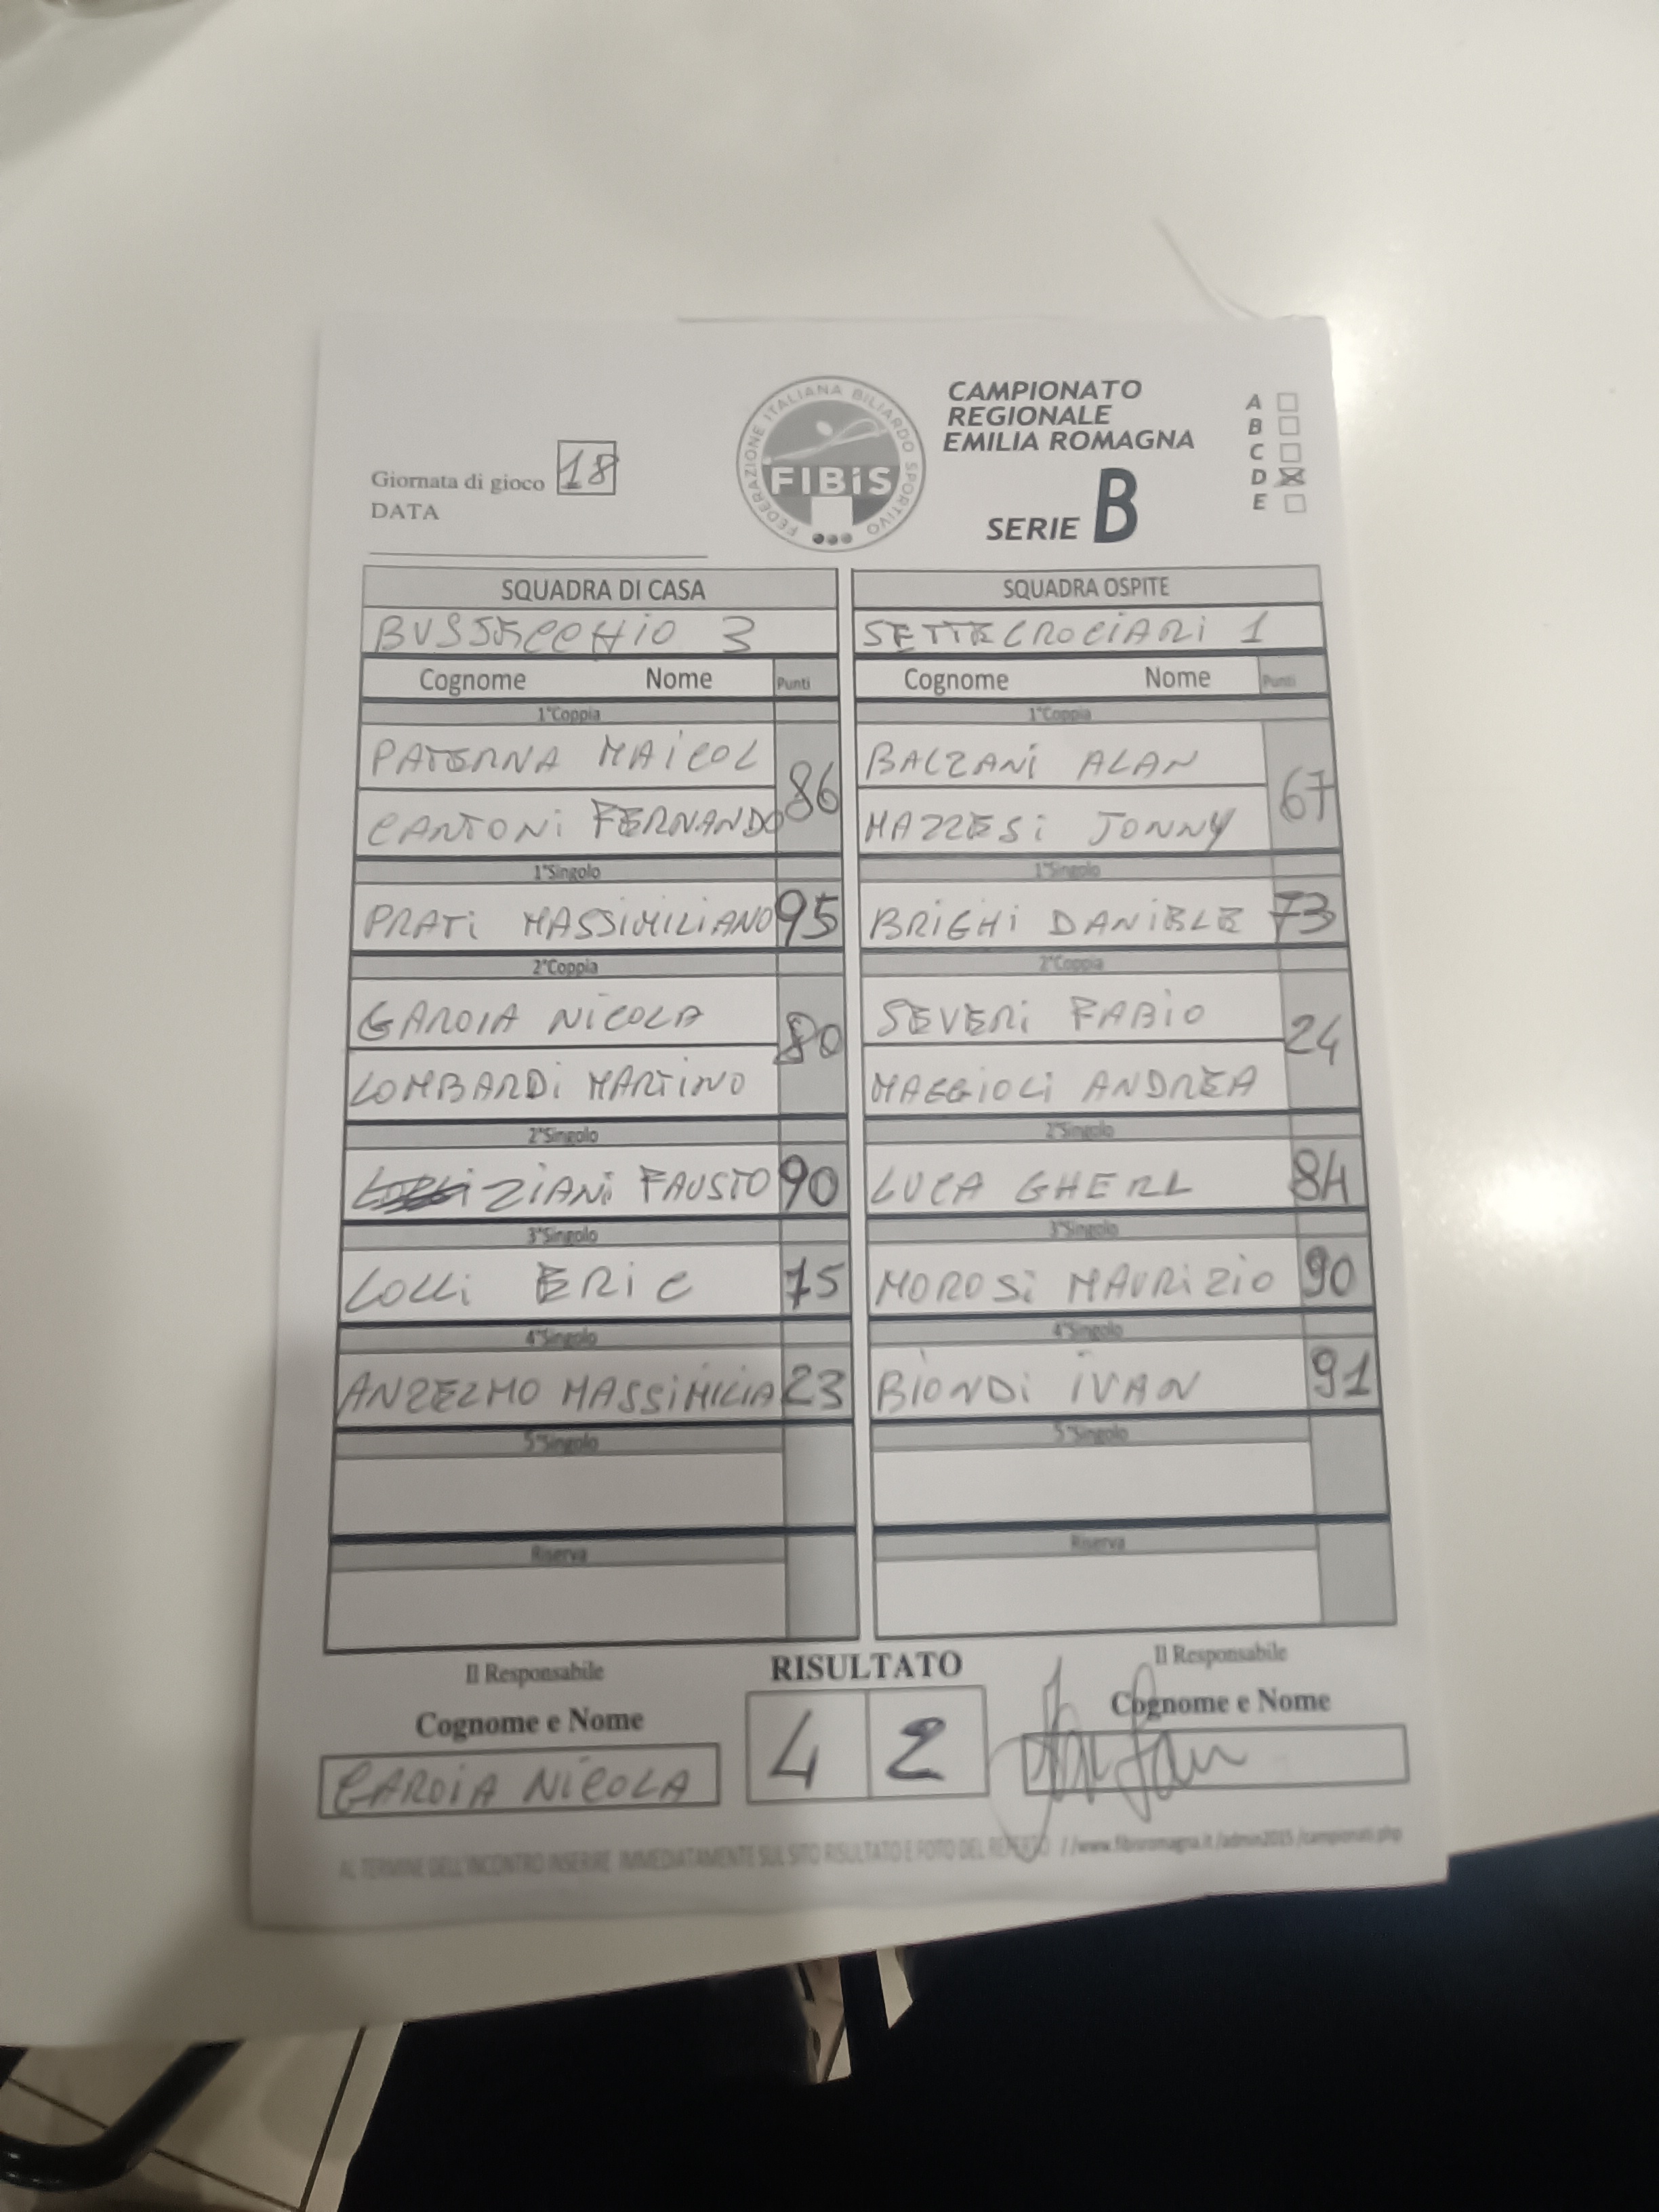 Giornata di gioco 18
DATA
FEDERAZIONE ITALIANA BILIARDO SPORTIVO
FIBiS
CAMPIONATO
REGIONALE
EMILIA ROMAGNA
SERIE B
A
B
C
D
E
SQUADRA DI CASA
BUSSECCHIO 3
Cognome Nome Punti
1°Coppia
PATERNA MAICOL
CANTONI FERNANDO
86
1°Singolo
PRATI MASSIMILIANO 95
2°Coppia
GAROIA NICOLA
LOMBARDI MARTINO
80
2°Singolo
ZIANI FAUSTO 90
3°Singolo
LOLLI ERIC 75
4°Singolo
ANZELMO MASSIMILIA 23
5°Singolo
Riserva
SQUADRA OSPITE
SETTECROCIARI 1
Cognome Nome Punti
1°Coppia
BALZANI ALAN
MAZZESI JONNY
67
1°Singolo
BRIGHI DANIELE 73
2°Coppia
SEVERI FABIO
MAGGIOLI ANDREA
24
2°Singolo
LUCA GHERL 84
3°Singolo
MOROSI MAURIZIO 90
4°Singolo
BIONDI IVAN 91
5°Singolo
Riserva
Il Responsabile
Cognome e Nome
GAROIA NICOLA
RISULTATO
4 2
Il Responsabile
Cognome e Nome
AL TERMINE DELL'INCONTRO INSERIRE IMMEDIATAMENTE SUL SITO RISULTATO E FOTO DEL REFERTO //www.fibisromagna.it/admin2015/campionati.php